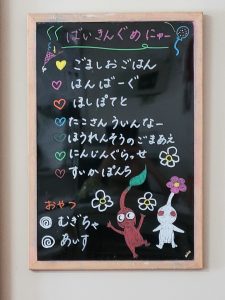 ばいきんぐめにゅー
ごましおごはん
はんばーぐ
ほしぽてと
たこさんういんなー
ほうれんそうのごまあえ
にんじんぐらっせ
すいかぽんち
おやつ
むぎちゃ
あいす